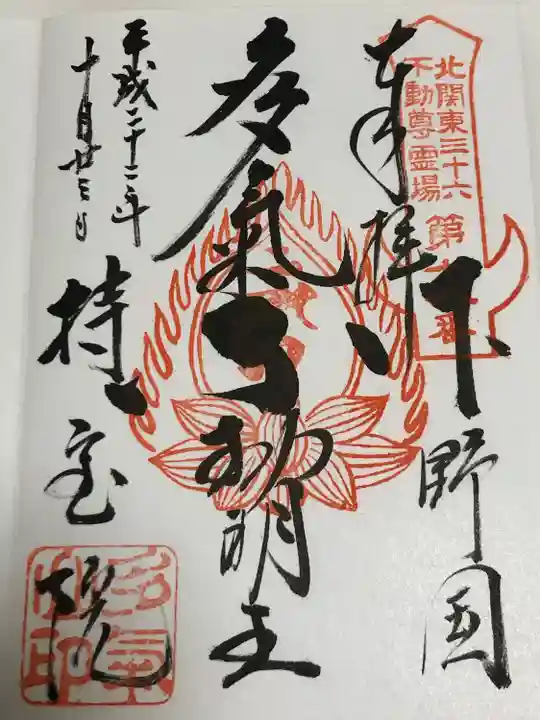 北関東三十六
不動尊霊場
第
番
奉拝
下野国
多氣不動明王
平成二十二年
十月廿三日
持宝院